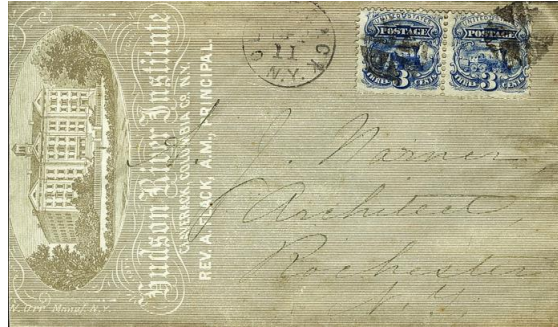 Hudson River Institute
CLAVERACK, COLUMBIA CO. N.Y.
REV. A. FLACK, A.M., PRINCIPAL.
N. Orr Manuf. N.Y.
11
N.Y.
UNITED STATES
POSTAGE
THREE 3 CENTS
UNITED STATES
POSTAGE
THREE 3 CENTS
A. J. Warner
Architect
Rochester
N.Y.